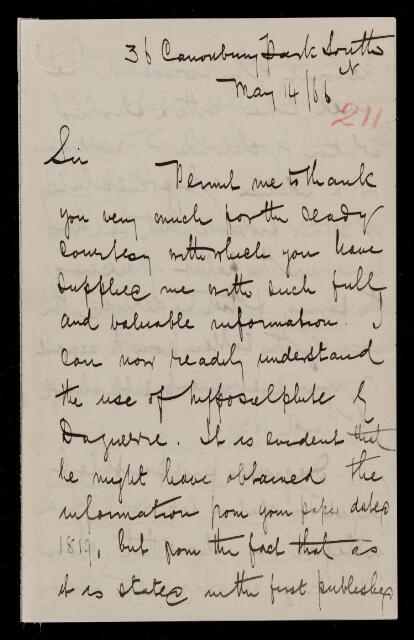 36 Canonbury Park South
N
May 14/66
211
Sir
Permit me to thank
you very much for the ready
courtesy with which you have
supplied me with such full
and valuable information. I
can now readily understand
the use of hyposulphite by
Daguerre. It is evident that
he might have obtained the
information from your paper dated
1819, but from the fact that as
it is stated in the first published